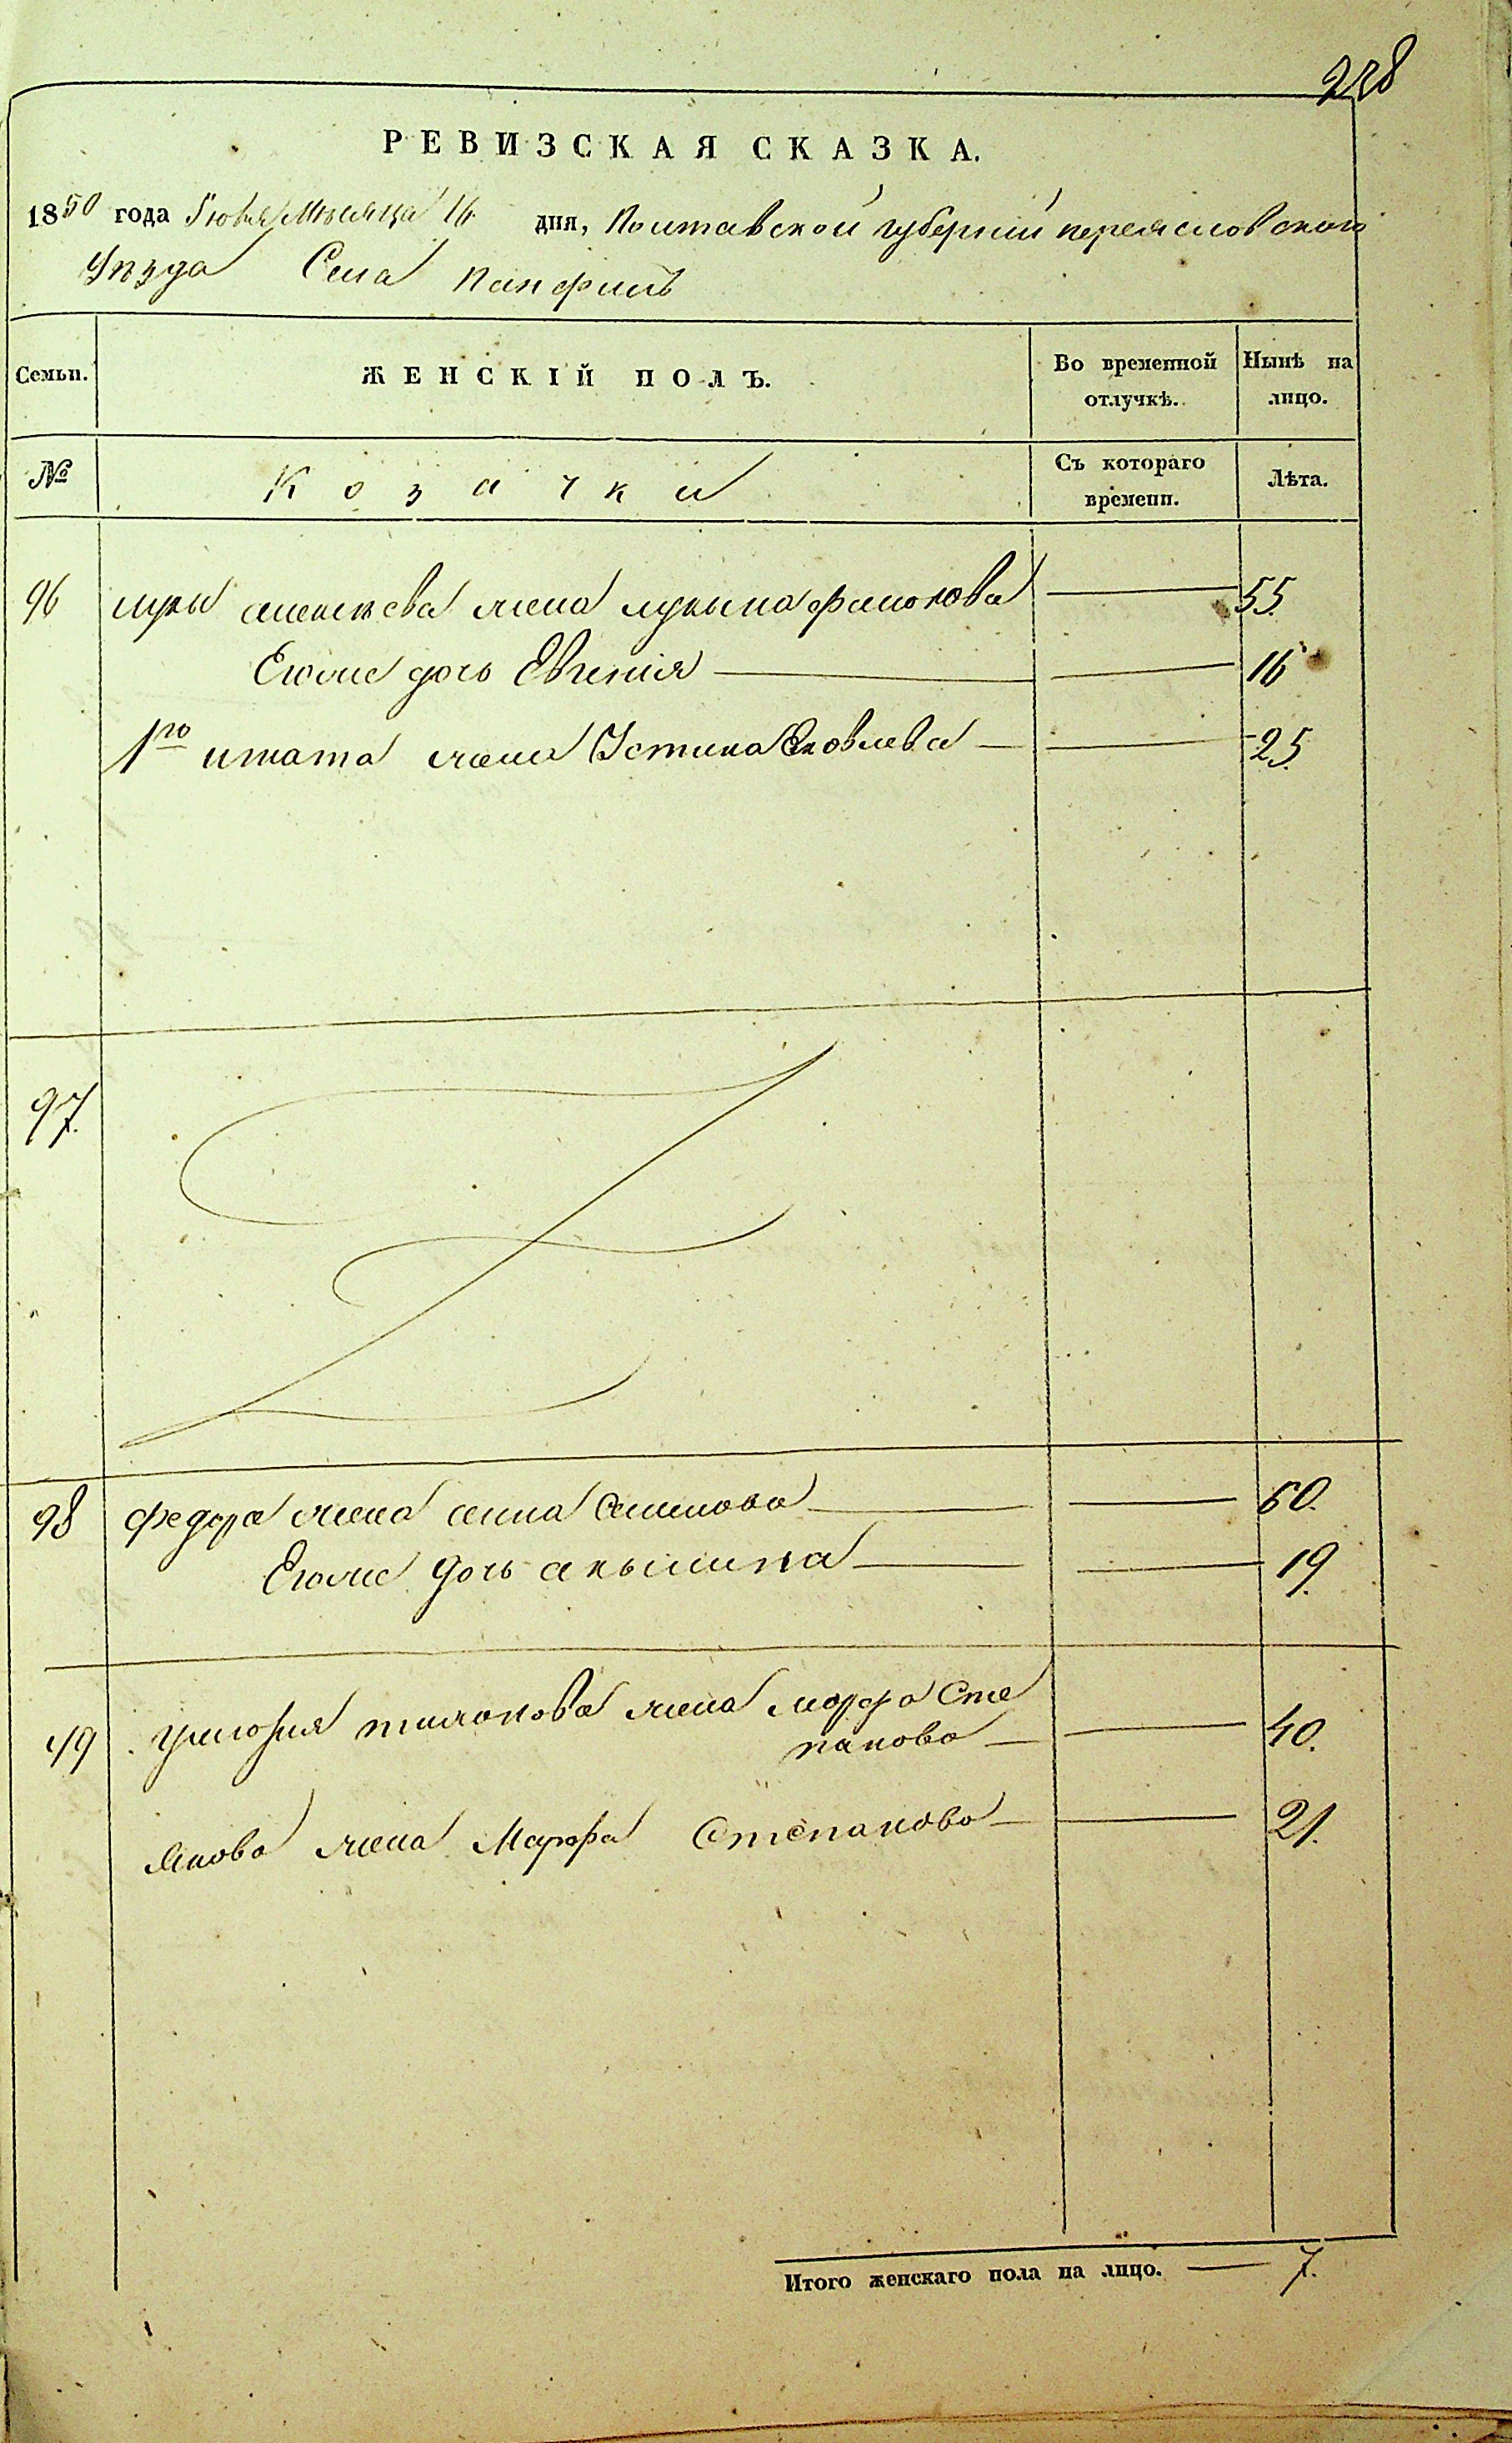 228
РЕВИЗСКАЯ СКАЗКА.
1850 года Іюня Месяца 16 дня, Полтавской губерніи переясловского
Уезда Села Панфилъ
Семьи. ЖЕНСКІЙ ПОЛЪ. Во временной отлучкѣ. Нынѣ на лицо.
№ Козачки Съ котораго времени. Лѣта.
96 луки алексѣева жена 55.
Егоже дочь Евгенія 16
1го игната жена Устина Яковлева 25.
97.
98 федора жена анна Семенова 60.
Егоже дочь акылина 19.
99 жена марфа Сте
панова 40.
Якова жена Марфа Степанова 21.
Итого женскаго пола на лицо. 7.